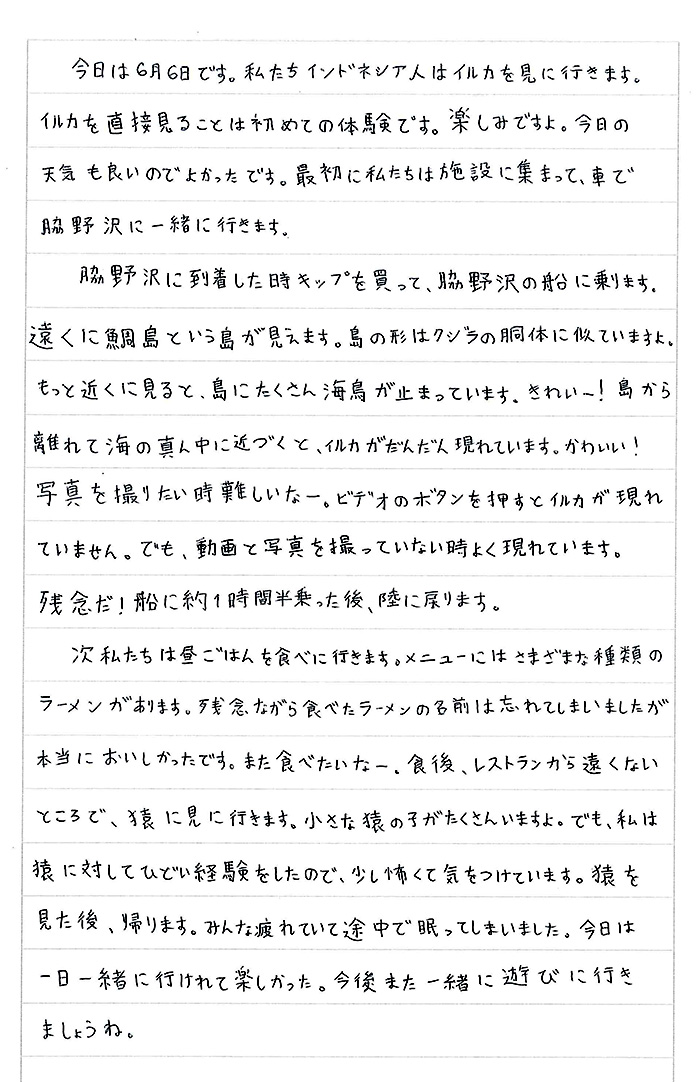 今日は6月6日です。私たちインドネシア人はイルカを見に行きます。
イルカを直接見ることは初めての体験です。楽しみですよ。今日の
天気も良いのでよかったです。最初に私たちは施設に集まって、車で
脇野沢に一緒に行きます。
脇野沢に到着した時キップを買って、脇野沢の船に乗ります。
遠くに鯛島という島が見えます。島の形はクジラの胴体に似ていますよ。
もっと近くに見ると、島にたくさん海鳥が止まっています。きれい~！島から
離れて海の真ん中に近づくと、イルカがだんだん現れています。かわいい！
写真を撮りたい時難しいなー。ビデオのボタンを押すとイルカが現れ
ていません。でも、動画と写真を撮っていない時よく現れています。
残念だ！船に約1時間半乗った後、陸に戻ります。
次私たちは昼ごはんを食べに行きます。メニューにはさまざまな種類の
ラーメンがあります。残念ながら食べたラーメンの名前は忘れてしまいましたが
本当においしかったです。また食べたいなー。食後、レストランから遠くない
ところで、猿に見に行きます。小さな猿の子がたくさんいますよ。でも、私は
猿に対してひどい経験をしたので、少し怖くて気をつけています。猿を
見た後、帰ります。みんな疲れていて途中で眠ってしまいました。今日は
一日一緒に行けれて楽しかった。今後また一緒に遊びに行き
ましょうね。